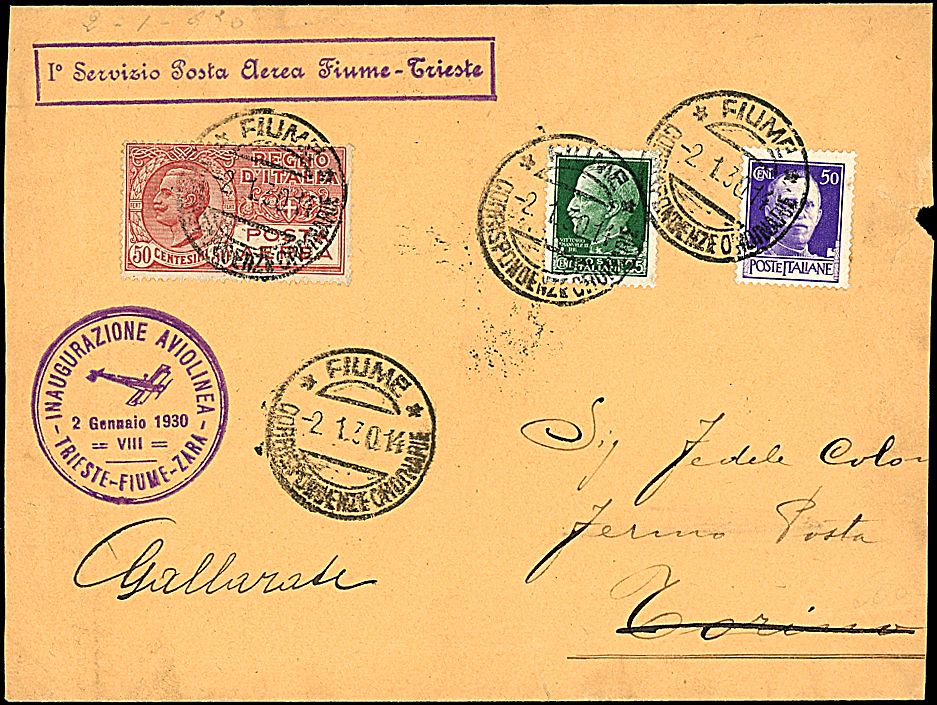 2-1-930
I° Servizio Posta Aerea Fiume-Trieste
* FIUME *
-2.1.30.14
CORRISPONDENZE ORDINARIE
REGNO
D'ITALIA
POSTA
AEREA
50 CENTESIMI
* FIUME *
-2.1.30.14
CORRISPONDENZE ORDINARIE
VITTORIO
CENT. 25
* FIUME *
-2.1.30.14
CORRISPONDENZE ORDINARIE
CENT. 50
POSTE ITALIANE
INAUGURAZIONE AVIOLINEA
2 Gennaio 1930
= VIII =
- TRIESTE-FIUME-ZARA -
* FIUME *
-2.1.30.14
CORRISPONDENZE ORDINARIE
Sig Fedele Colon
Fermo Posta
Torino
Gallarate